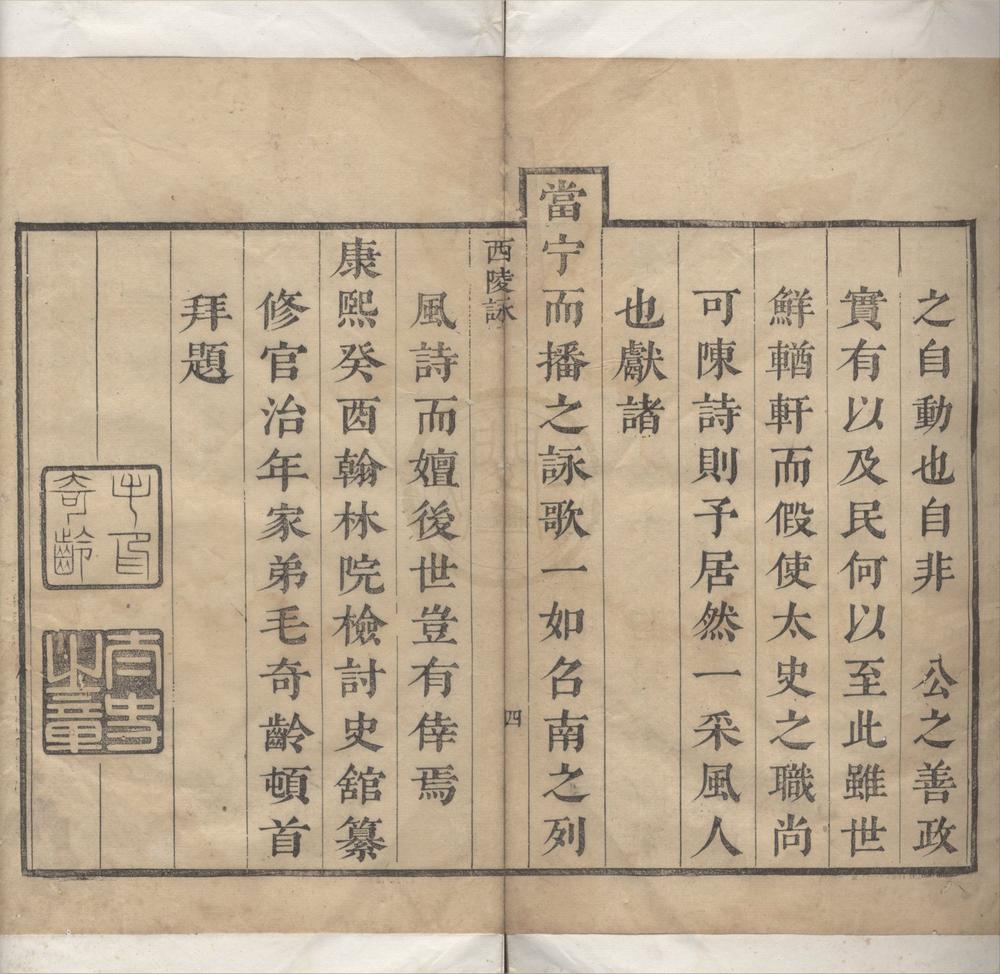 之自動也自非　公之善政
實有以及民何以至此雖世
鮮輶軒而假使太史之職尚
可陳詩則予居然一采風人
也獻諸
當宁而播之詠歌一如召南之列
西陵詠　四
風詩而嬗後世豈有倖焉
康熙癸酉翰林院檢討史舘纂
修官治年家弟毛奇齡頓首
拜題
毛氏
奇齡
太史
之章